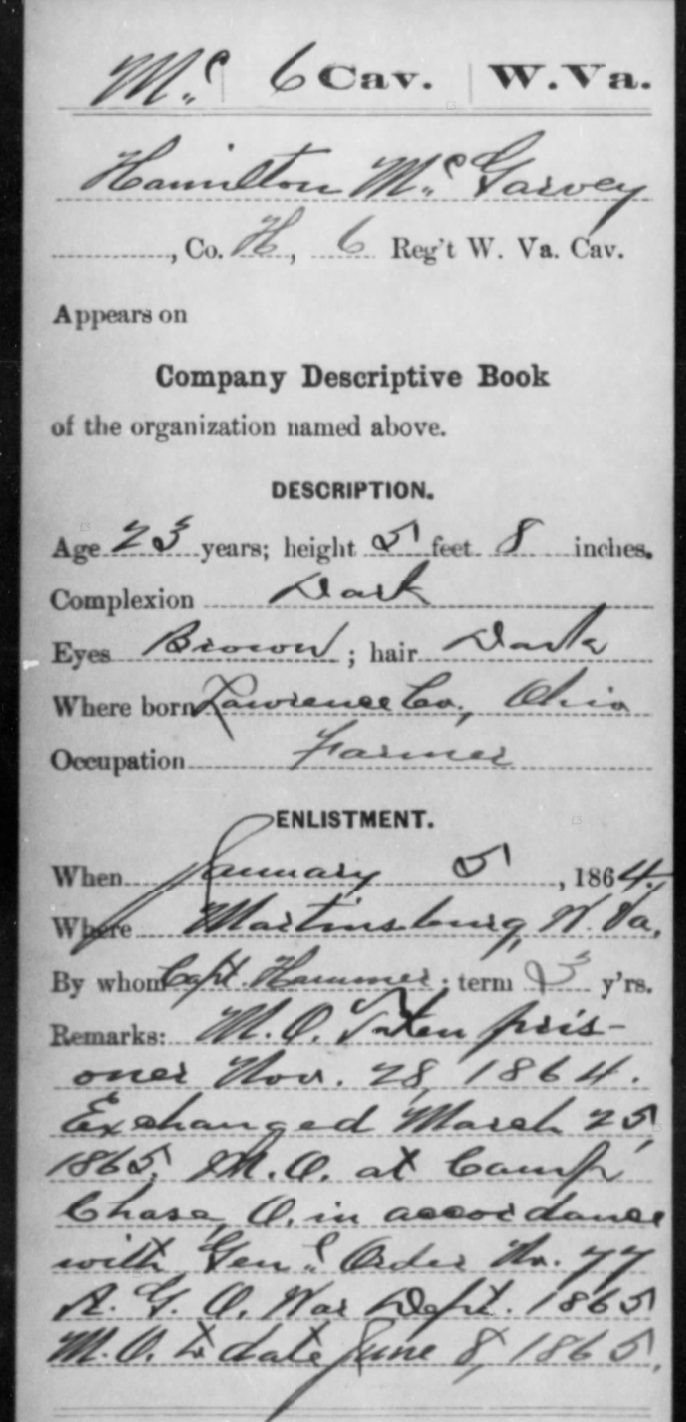 Mc | 6 Cav. | W.Va.
Hamilton Mc Garvey
, Co. H, 6 Reg't W. Va. Cav.
Appears on
Company Descriptive Book
of the organization named above.
DESCRIPTION.
Age 23 years; height 5 feet 8 inches.
Complexion Dark
Eyes Brown; hair Dark
Where born Lawrence Co., Ohio
Occupation Farmer
ENLISTMENT.
When January 5, 1864.
Where Martinsburg, W. Va.
By whom Capt. Hammer; term 3 y'rs.
Remarks: M.O. Taken pris-
oner Nov. 28, 1864.
Exchanged March 25
1865. M.O. at Camp
Chase, O. in accordance
with Genl Order No. 77
A. G. O. War Dept. 1865
M.O. to date June 8, 1865.